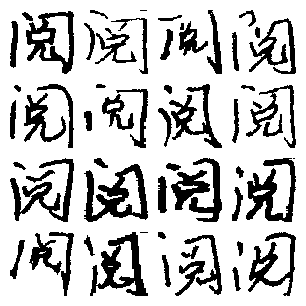 阅阅阅阅
阅阅阅阅
阅阅阅阅
阅阅阅阅